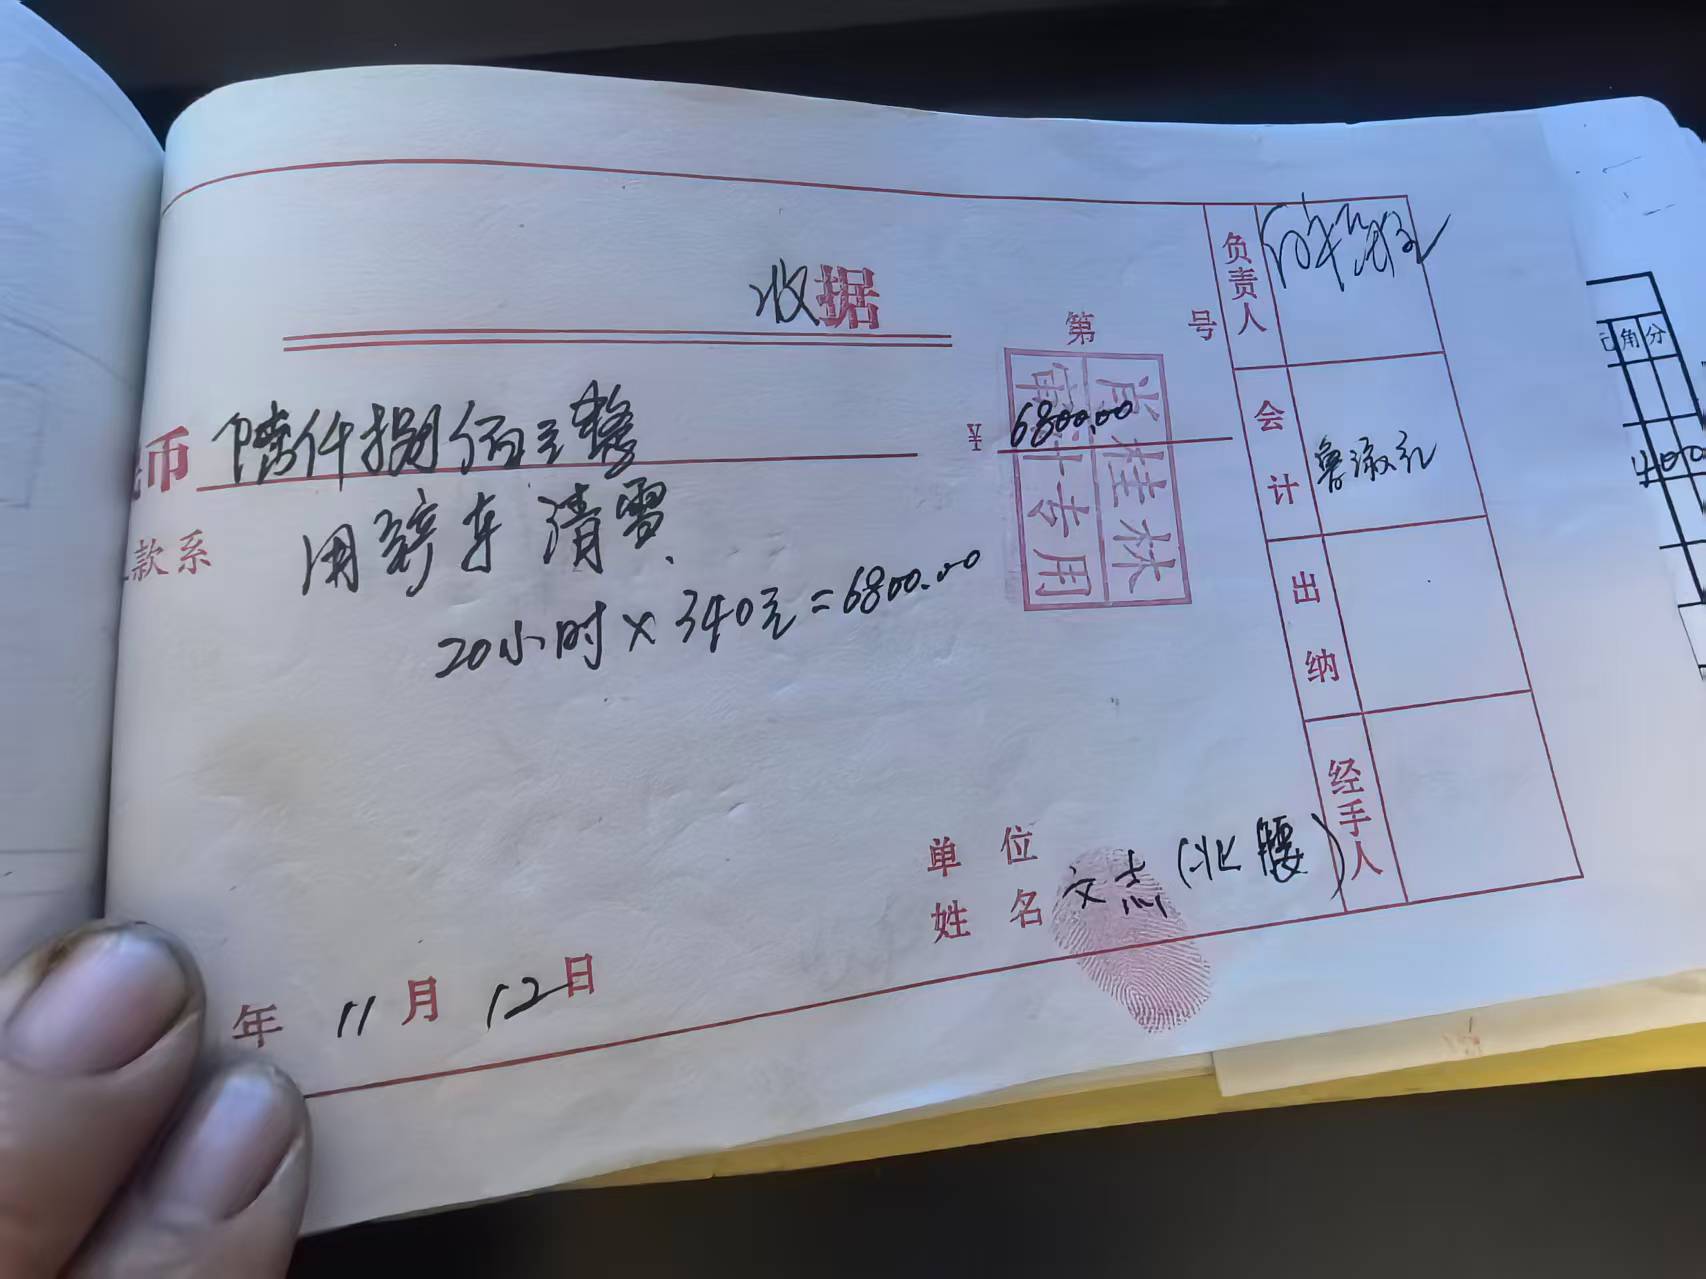 收据
第 号
币 陆仟捌佰元整
¥ 6800.00
款系 用铲车清雪
20小时×340元=6800.00
肖桂林
审计专用
单位
姓名 文志(北腰)
年 11月 12日
负责人
会计 鲁淑红
出纳
经手人
角分
400